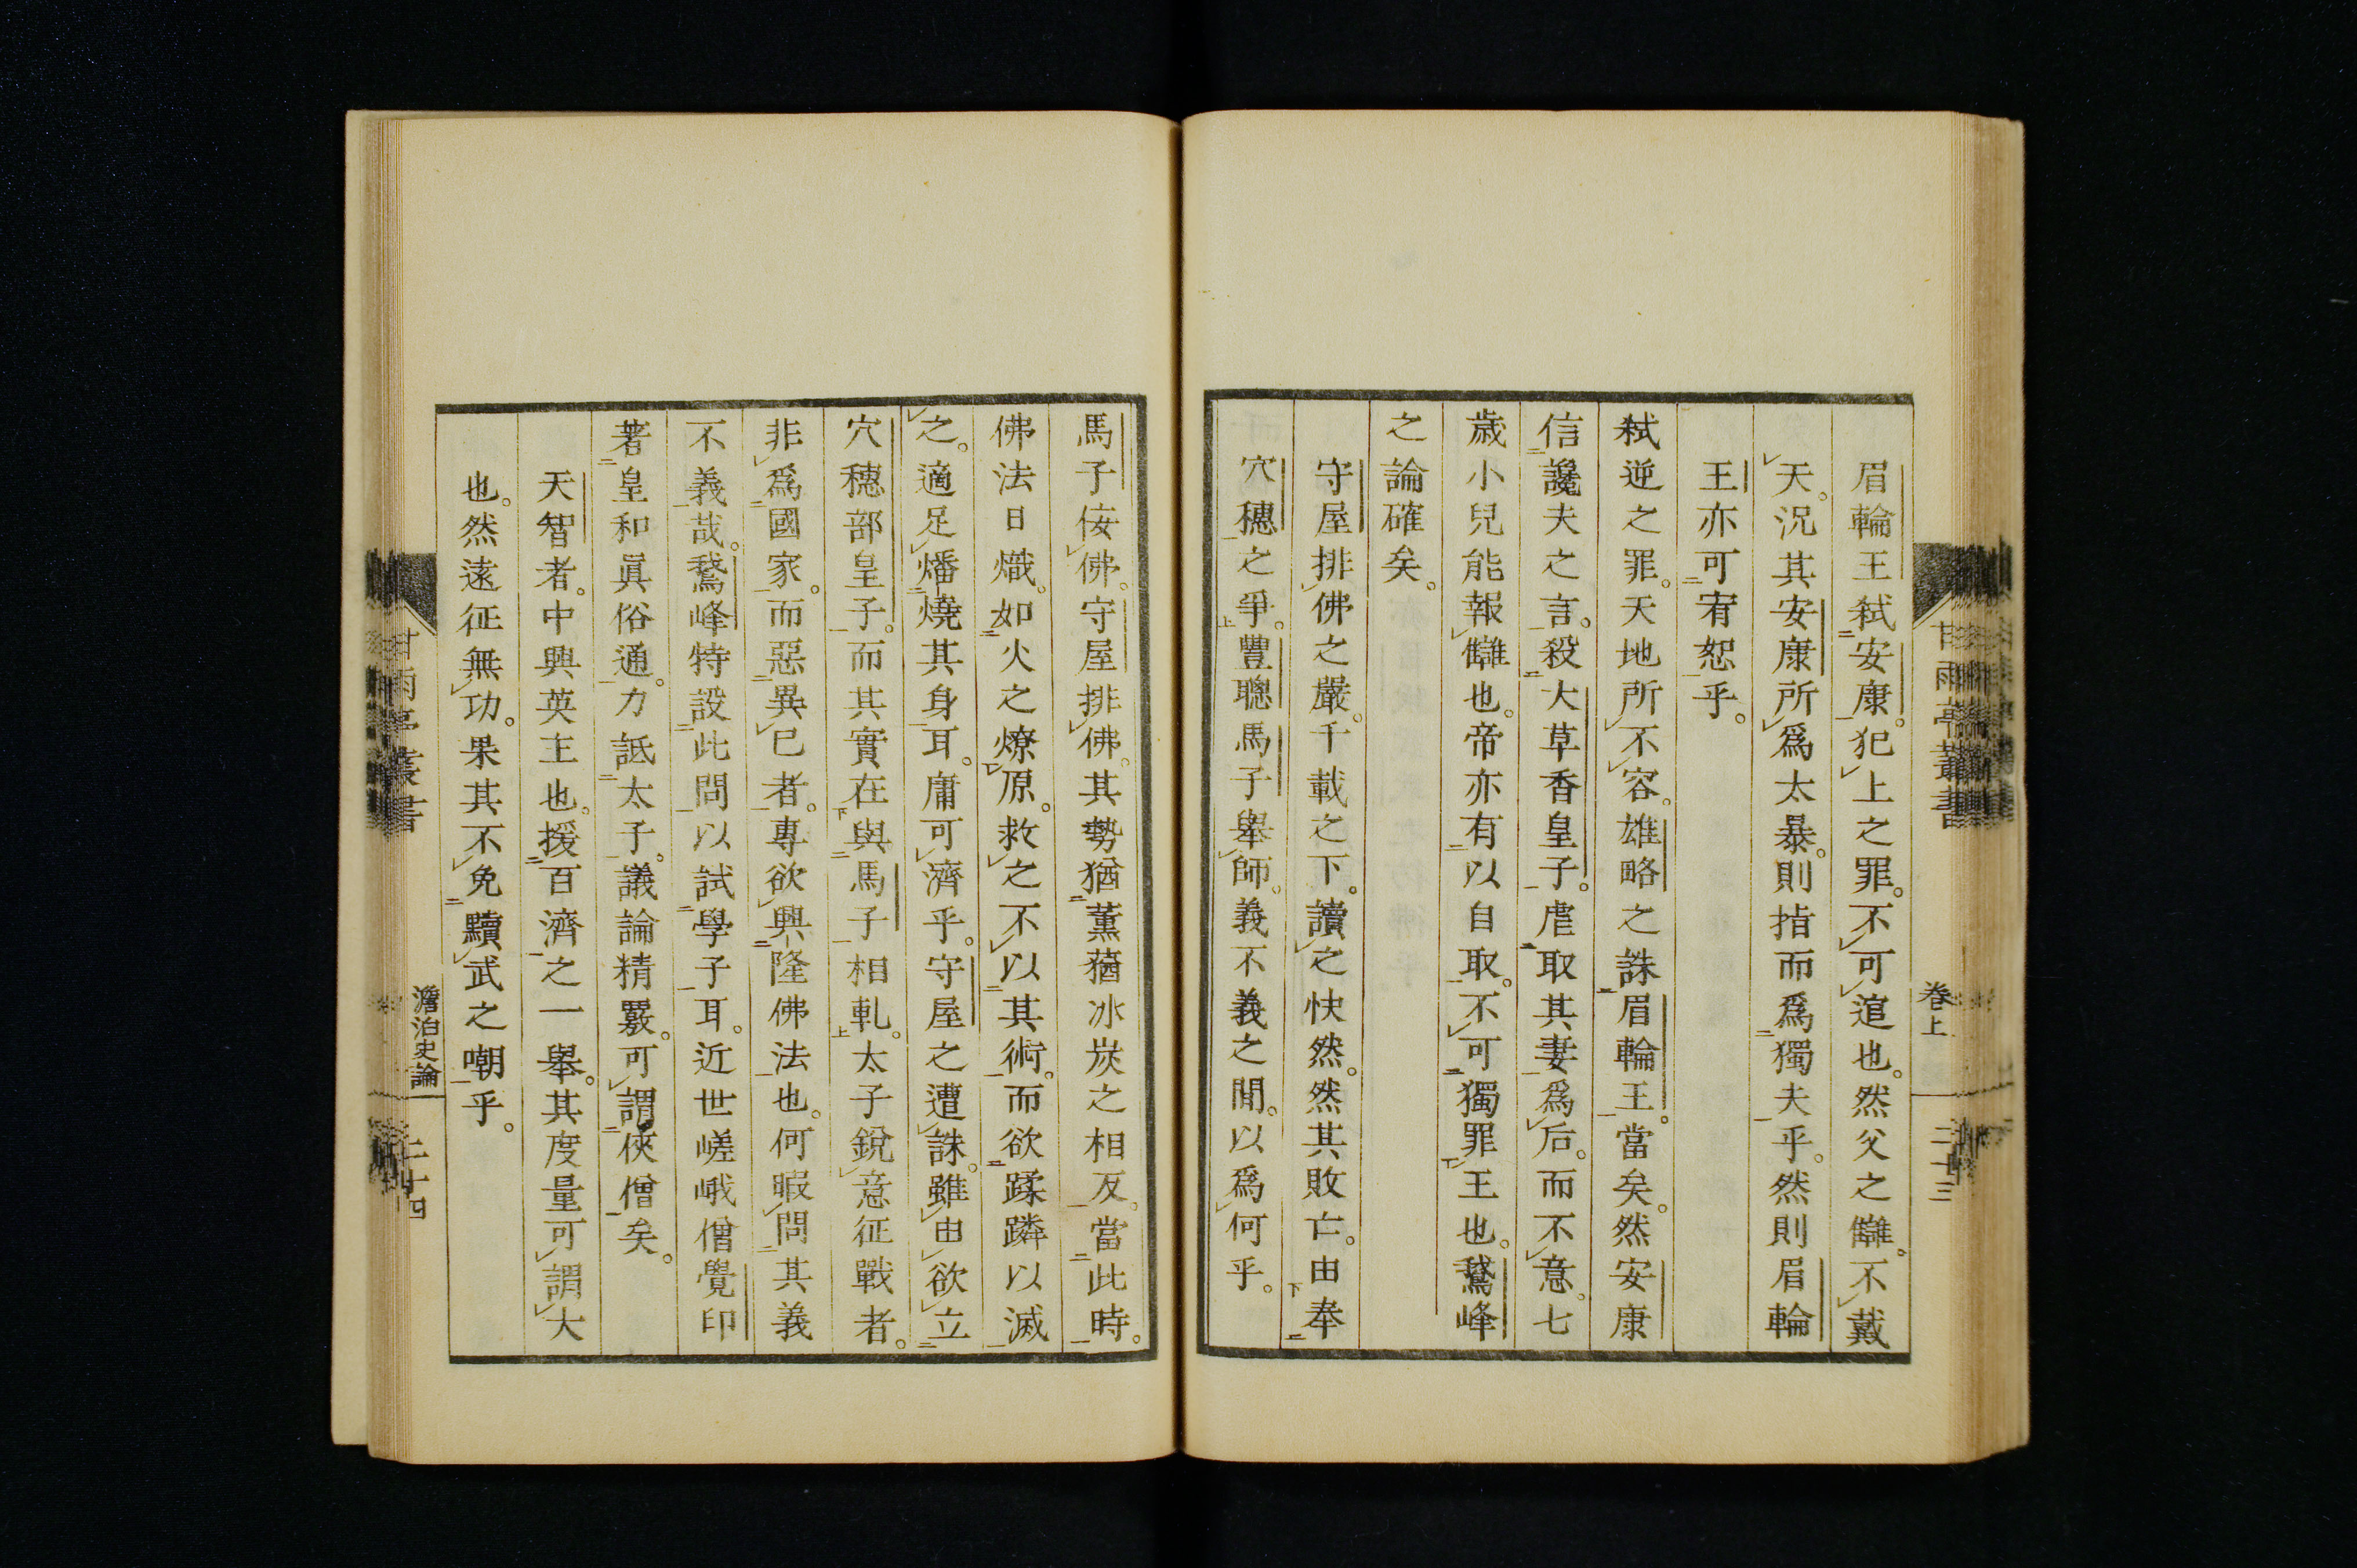 眉輪王弑安康。犯上之罪。不可逭也。然父之讎。不戴
天。況其安康所爲太暴。則指而爲獨夫乎。然則眉輪
王亦可宥恕乎。
弑逆之罪。天地所不容。雄略之誅眉輪王。當矣。然安康
信讒夫之言。殺大草香皇子。虐取其妻爲后。而不意。七
歲小兒能報讎也。帝亦有以自取。不可獨罪王也。鵞峰
之論確矣。
守屋排佛之嚴。千載之下。讀之快然。然其敗亡。由奉
穴穗之爭。豐聰馬子舉師。義不義之間。以爲何乎。
甘雨亭叢書
卷上
二十三
馬子侫佛。守屋排佛。其勢猶薰蕕冰炭之相反。當此時。
佛法日熾。如火之燎原。救之不以其術。而欲蹂躪以滅
之。適足燔燒其身耳。庸可濟乎。守屋之遭誅。雖由欲立
穴穗部皇子。而其實在與馬子相軋。太子銳意征戰者。
非爲國家。而惡異己者。專欲興隆佛法也。何暇問其義
不義哉。鵞峰特設此問以試學子耳。近世嵯峨僧覺印
著皇和眞俗通。力詆太子。議論精覈。可謂俠僧矣。
天智者。中興英主也。援百濟之一舉。其度量可謂大
也。然遠征無功。果其不免黷武之嘲乎。
甘雨亭叢書
澹泊史論
二十四